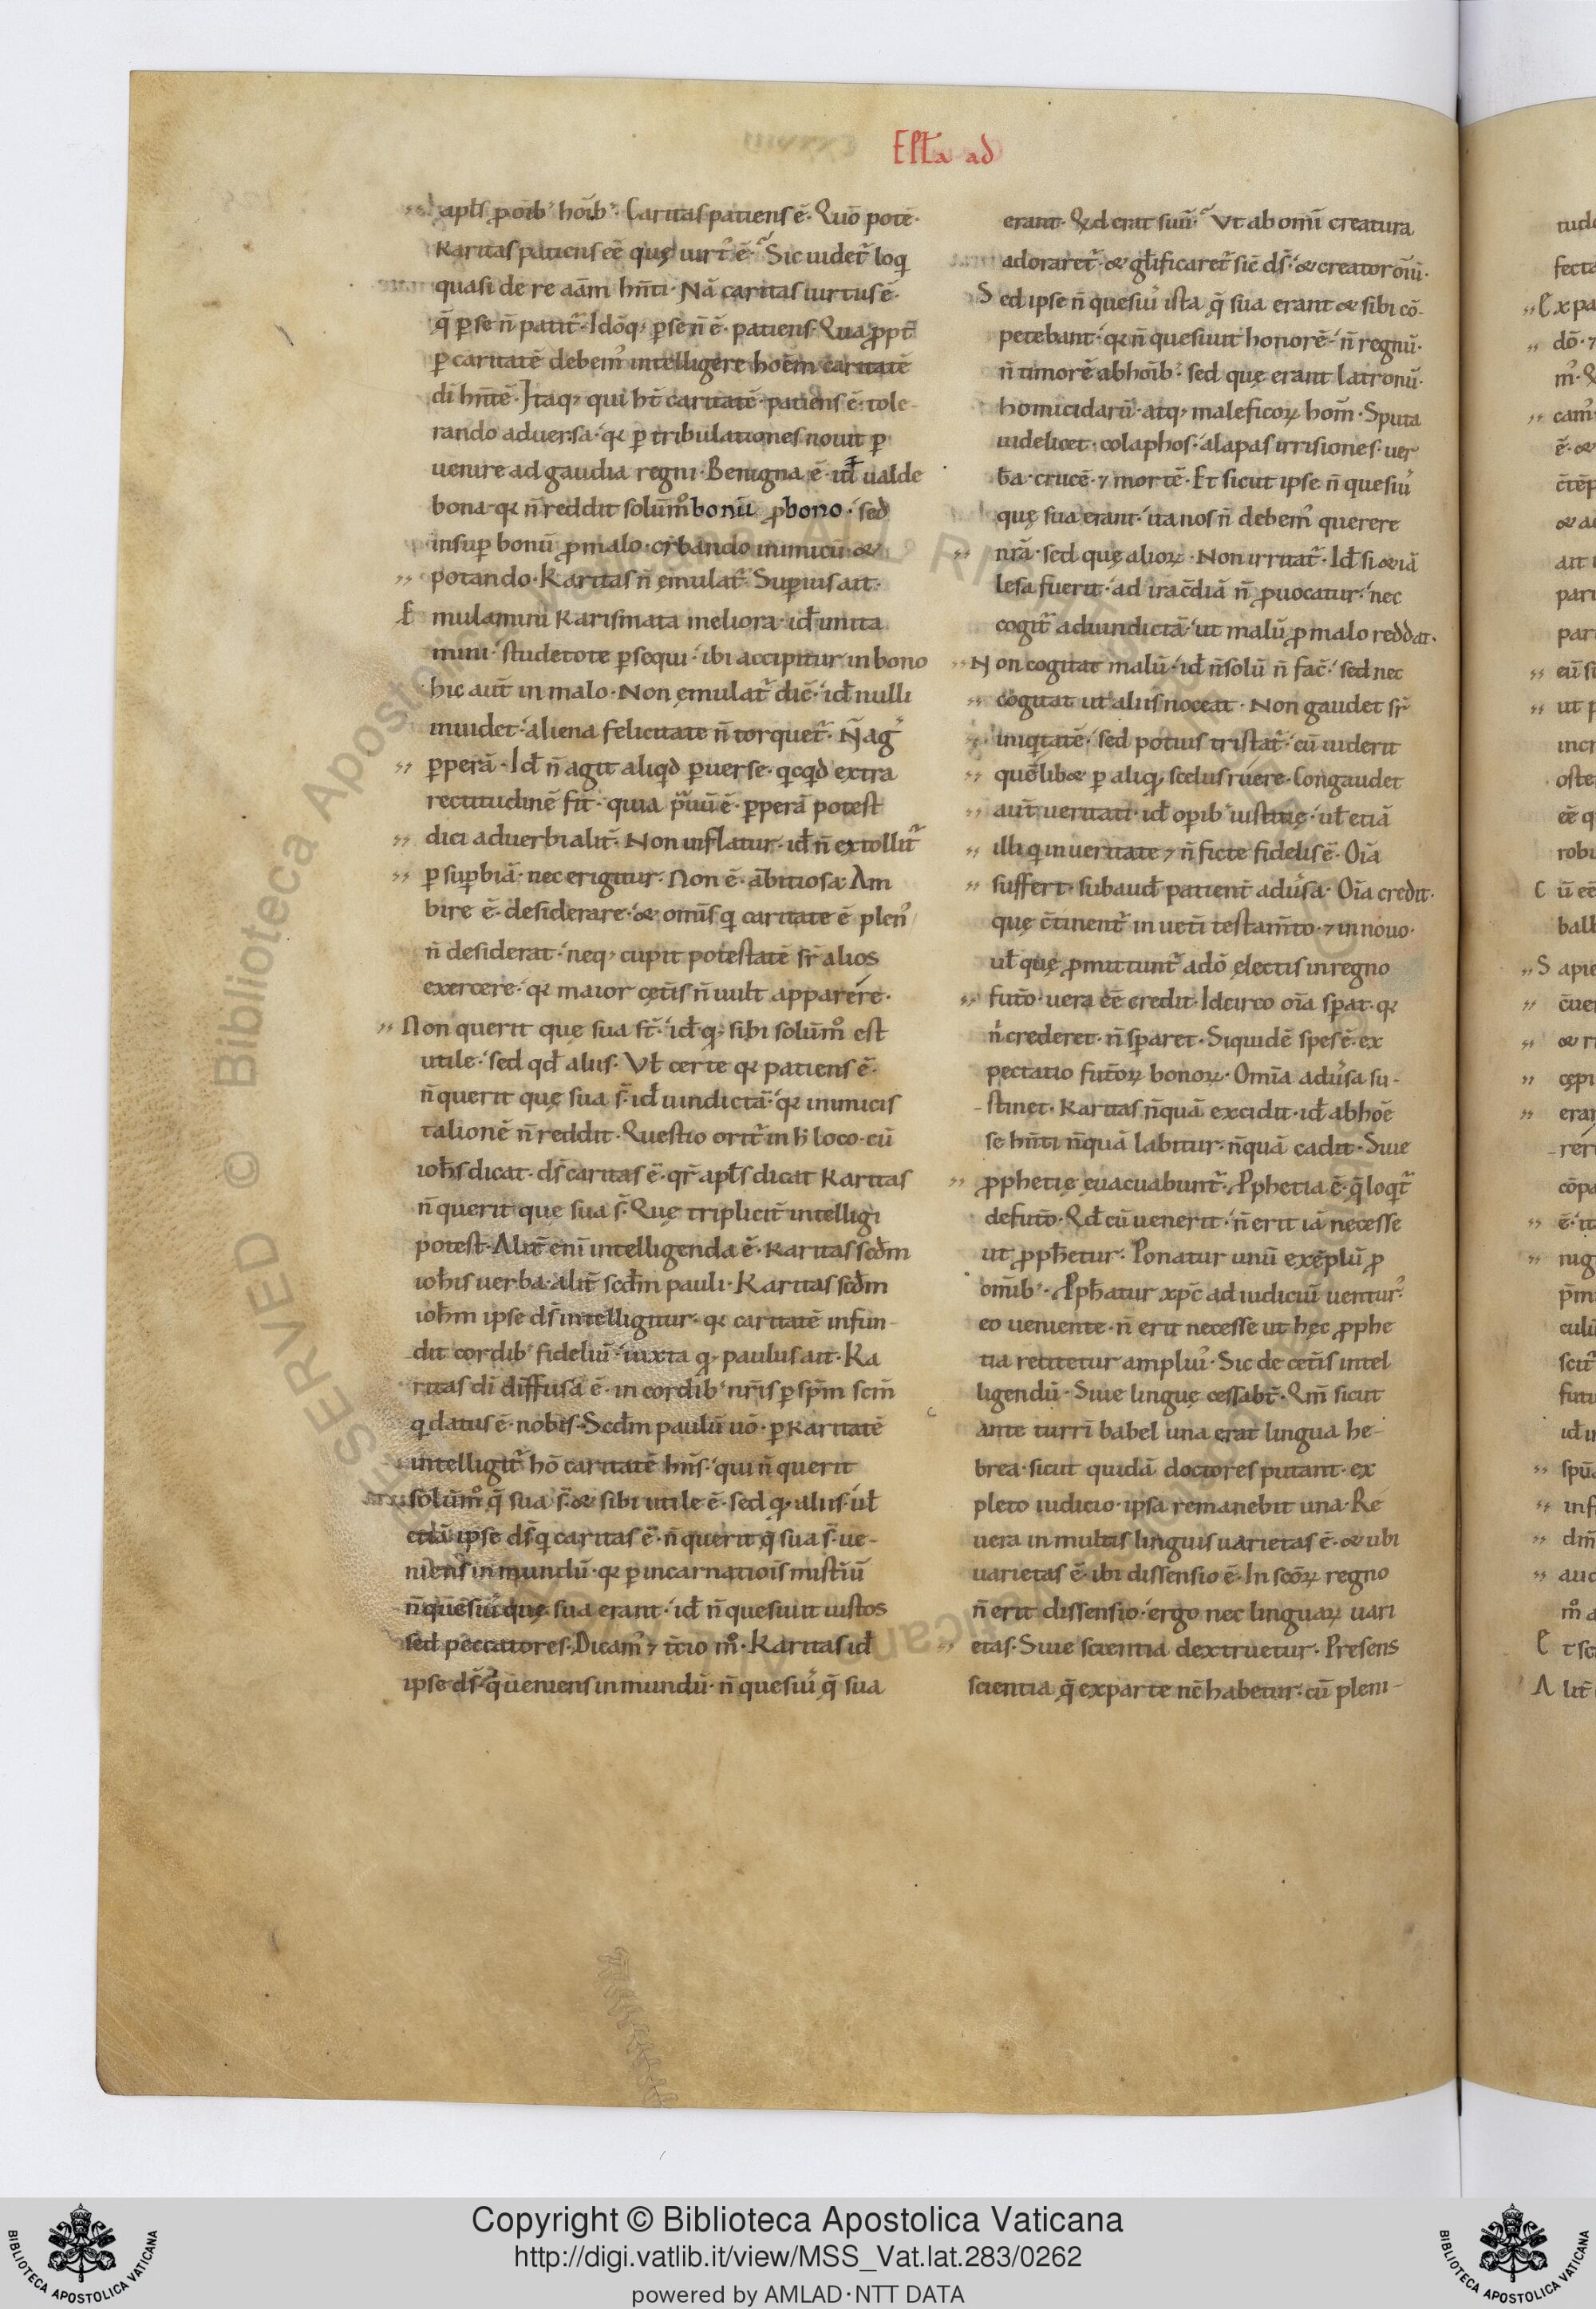 Epľa ad
apľs ꝓ oīb; hoīb;. Caritas patiens ē. Quō potē
karitas patiens eē quę uirt᷒ ē. Sic uidet᷑ loq̇
quasi de re aām hn̄ti. Nā caritas uirtus ē.
q̄ ꝑ se n̄ patit᷑. Idōq; ꝑ se n̄ ē patiens. Quaꝓpt̄
ꝑ caritatē debem᷒ intelligere hoēm caritatē
dī hn̄tē. Itaq; qui ht̄ caritatē patiens ē. tole-
rando aduersa. qꝛ ꝑ tribulationes nouit ꝑ
uenire ad gaudia regni. Benigna ē. id ualde
bona. qꝛ n̄ reddit solūm° bonū ꝓ bono. sed
insuꝑ bonū ꝓ malo. cibando inimicū. &
potando. Karitas n̄ ęmulat᷑. Suꝑius ait.
Emulamini karismata meliora. id imita
mini. studetote ꝑsequi. ibi accipitur in bono
hic aut̄ in malo. Non ęmulat᷑ dic̄. id nulli
inuidet. aliena felicitate n̄ torquet᷑. N̄ agͥ
ꝑperā. Id n̄ agit aliqd ꝑuerse. qcqd extra
rectitudinē fit. quia p̄uū ē. ꝑperā potest
dici aduerbialit̄. Non inflatur. id n̄ extollit᷑
ꝑ suꝑbiā. nec erigitur. Non ē ābitiosa. Am
bire ē desiderare. & omīs q̇ caritate ē plen᷒
n̄ desiderat. neq; cupit potestatē sr̄ alios
exercere. qꝛ maior cęt̄is n̄ uult apparere.
Non querit quę sua st̄. id q; sibi solūm° est
utile. sed qd aliis. Vł certe qꝛ patiens ē.
n̄ querit quę sua s̄. id uindictā. qꝛ inimicis
talionē n̄ reddit. Questio orit᷑ in h̄ loco. cū
ioh̄s dicat. ds̄ caritas ē. qr̄ apľs dicat karitas
n̄ querit que sua s̄. Quę triplicit̄ intelligi
potest. Alit̄ enī intelligenda ē karitas scdm
ioh̄is uerba. alit̄ scdm pauli. Karitas scdm
ioh̄m ipse ds̄ intelligitur. qꝛ caritatē infun-
dit cordib; fideliū. iuxta q; paulus ait. Ka
ritas dī diffusa ē in cordib; nr̄is ꝑ sp̄m scm̄
q̇ datus ē nobis. Scdm paulū uō. ꝑ karitatē
intelligit᷑ hō caritatē hn̄s. qui n̄ querit
solūm° q̄ sua s̄. & sibi utile ē. sed q; aliis. uł
etiā ipse ds̄ q̇ caritas ē. n̄ querit q̄ sua s̄. ue-
niens in mundū. qꝛ ꝑ incarnatiois mistīū
n̄ quesiuͥ quę sua erant. id n̄ quesiuit iustos
sed peccatores. Dicam᷒ ⁊ t̄cio m°. Karitas id
ipse ds̄. q̇ ueniens in mundū. n̄ quesiuͥ q̄ sua
erant. Qd erat suū. Vt ab omī creatura
adoraret᷑. & gľificaret᷑ sic̄ ds̄. & creator oīū.
Sed ipse n̄ quesiuͥ ista q̄ sua erant & sibi cō-
petebant. qꝛ n̄ quesiuit honorē. n̄ regnū.
n̄ timorē ab hoīb;. sed quę erant latronū.
homicidarū. atq; maleficoꝝ hom̄. Sputa
uidelicet. colaphos. alapas irrisiones. uer
b̄a. crucē. ⁊ mortē. Et sicut ipse n̄ quesiuͥ
quę sua erant. ita nos n̄ debem᷒ querere
nr̄ā. sed quę alioꝝ. Non irritat᷑. Id si & iā
lesa fuerit. ad irac̄diā n̄ ꝓuocatur. nec
cogit᷑ ad uindictā. ut malū ꝓ malo reddat.
Non cogitat malū. id n̄ solū n̄ fac̄. sed nec
cogitat ut aliis noceat. Non gaudet sr̄
iniq̇tatē. sed potius tristat᷑. cū uiderit
quēlib& ꝑ aliq; scelus ruere. Congaudet
aut̄ ueritati. id oꝑib; iustitię. uł etiā
illi q̇ in ueritate ⁊ n̄ ficte fidelis ē. Oīa
suffert. subaud patient̄ adūsa. Oīa credit.
quę c̄tinent᷑ in uet̄i testam̄to. ⁊ in nouo.
uł quę ꝓmittunt᷑ a dō electis in regno
fut̄o. uera eē credit. Idcirco oīa sꝑat. qꝛ
n̄ crederet. n̄ sꝑaret. Siquidē spes ē. ex
pectatio fut̄oꝝ bonoꝝ. Omīa adūsa su-
stinet. Karitas n̄quā excidit. id ab hoē
se hn̄ti n̄quā labitur. n̄quā cadit. Siue
ꝓphetię euacuabunt᷑. Ꝓphetia ē. q̄ loqt᷑
de fut̄o. Qd cū uenerit. n̄ erit iā necesse
ut ꝓph̄etur. Ponatur unū exēplū ꝓ
omīb;. Ꝓph̄atur xp̄c ad iudiciū uentur᷒
eo ueniente. n̄ erit necesse ut hęc ꝓphe
tia retitetur ampliu᷒. Sic de cet̄is intel
ligendū. Siue linguę cessabt̄. Qm̄ sicut
ante turrī babel una erat lingua he-
brea. sicut quidā doctores putant. ex
pleto iudicio. ipsa remanebit una. Re
uera in multis linguis uarietas ē. & ubi
uarietas ē. ibi dissensio ē. In scōꝝ regno
n̄ erit dissensio. ergo nec linguaꝝ uari
etas. Siue scientia dextruetur. Presens
scientia q̄ ex parte nc̄ habetur. cū pleni-
Copyright © Biblioteca Apostolica Vaticana
http://digi.vatlib.it/view/MSS_Vat.lat.283/0262
powered by AMLAD·NTT DATA
BIBLIOTECA APOSTOLICA VATICANA
BIBLIOTECA APOSTOLICA VATICANA